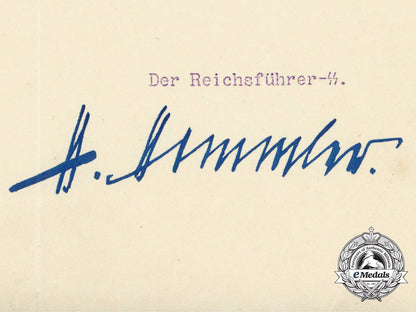 Der Reichsführer-ᛋᛋ.
H. Himmler.
eMedals